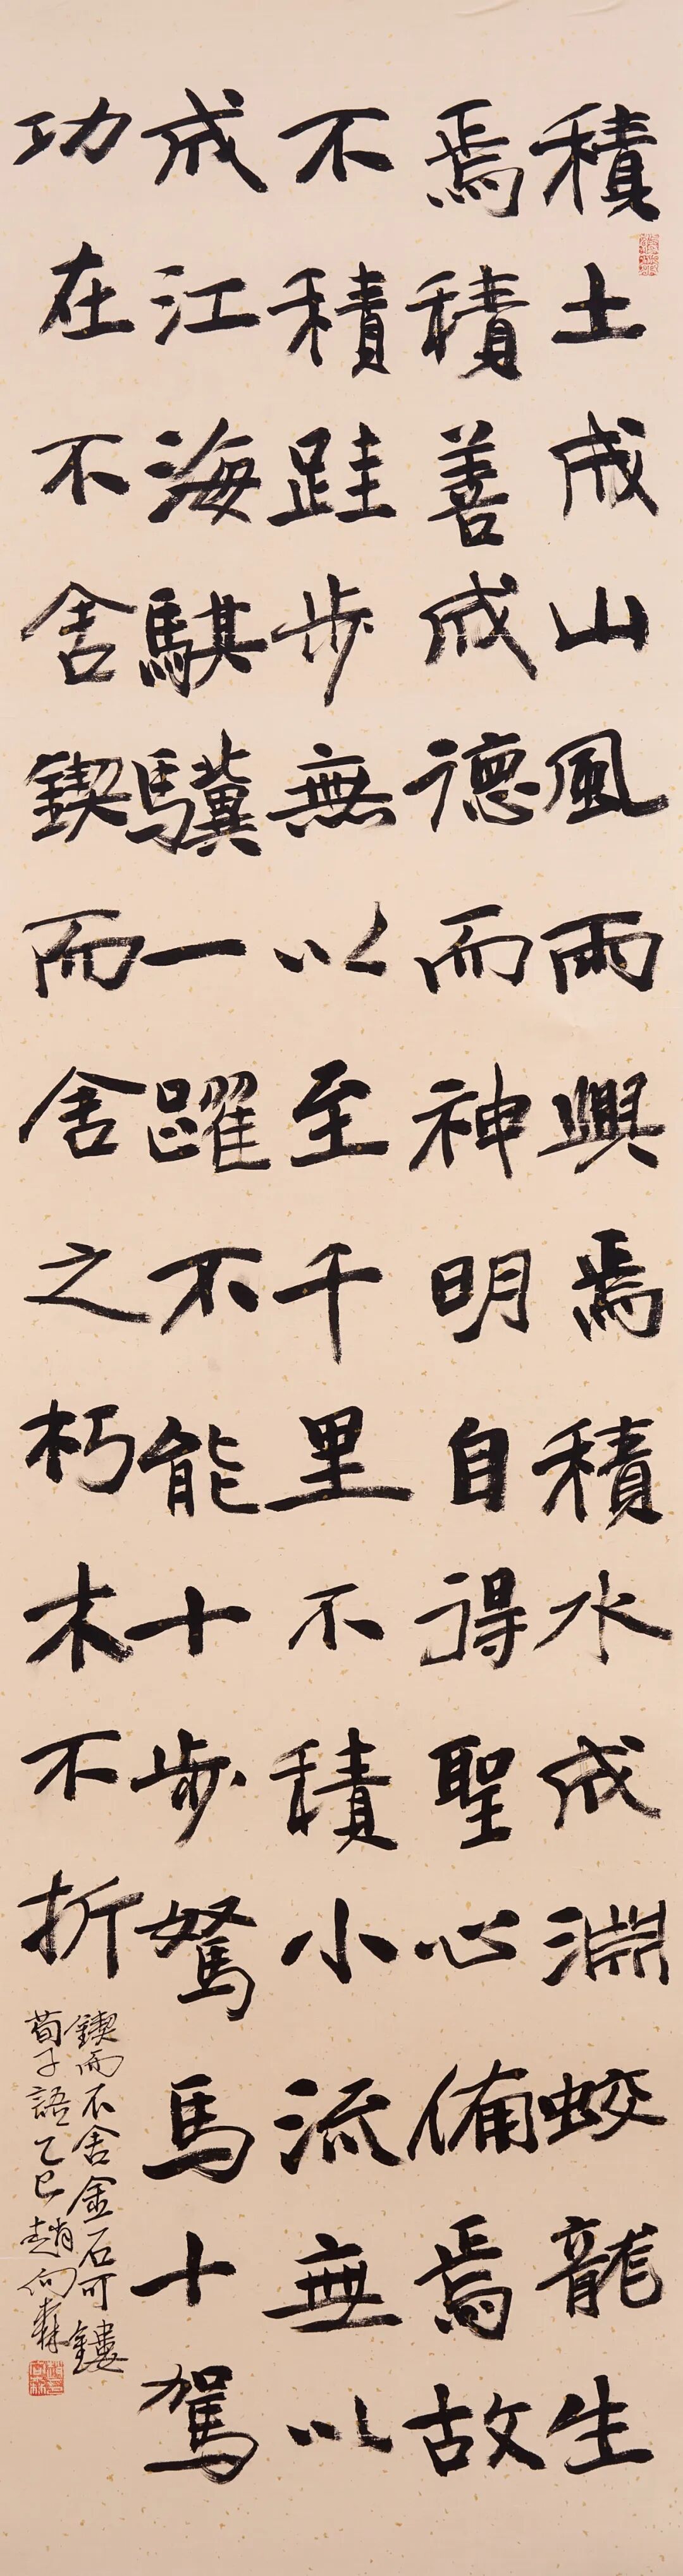 積土成山風雨興焉積水成淵蛟龍生
焉積善成德而神明自得聖心備焉故
不積跬步無以至千里不積小流無以
成江海騏驥一躍不能十步駑馬十駕
功在不舍鍥而舍之朽木不折
鍥而不舍金石可鏤
荀子語乙巳趙向森